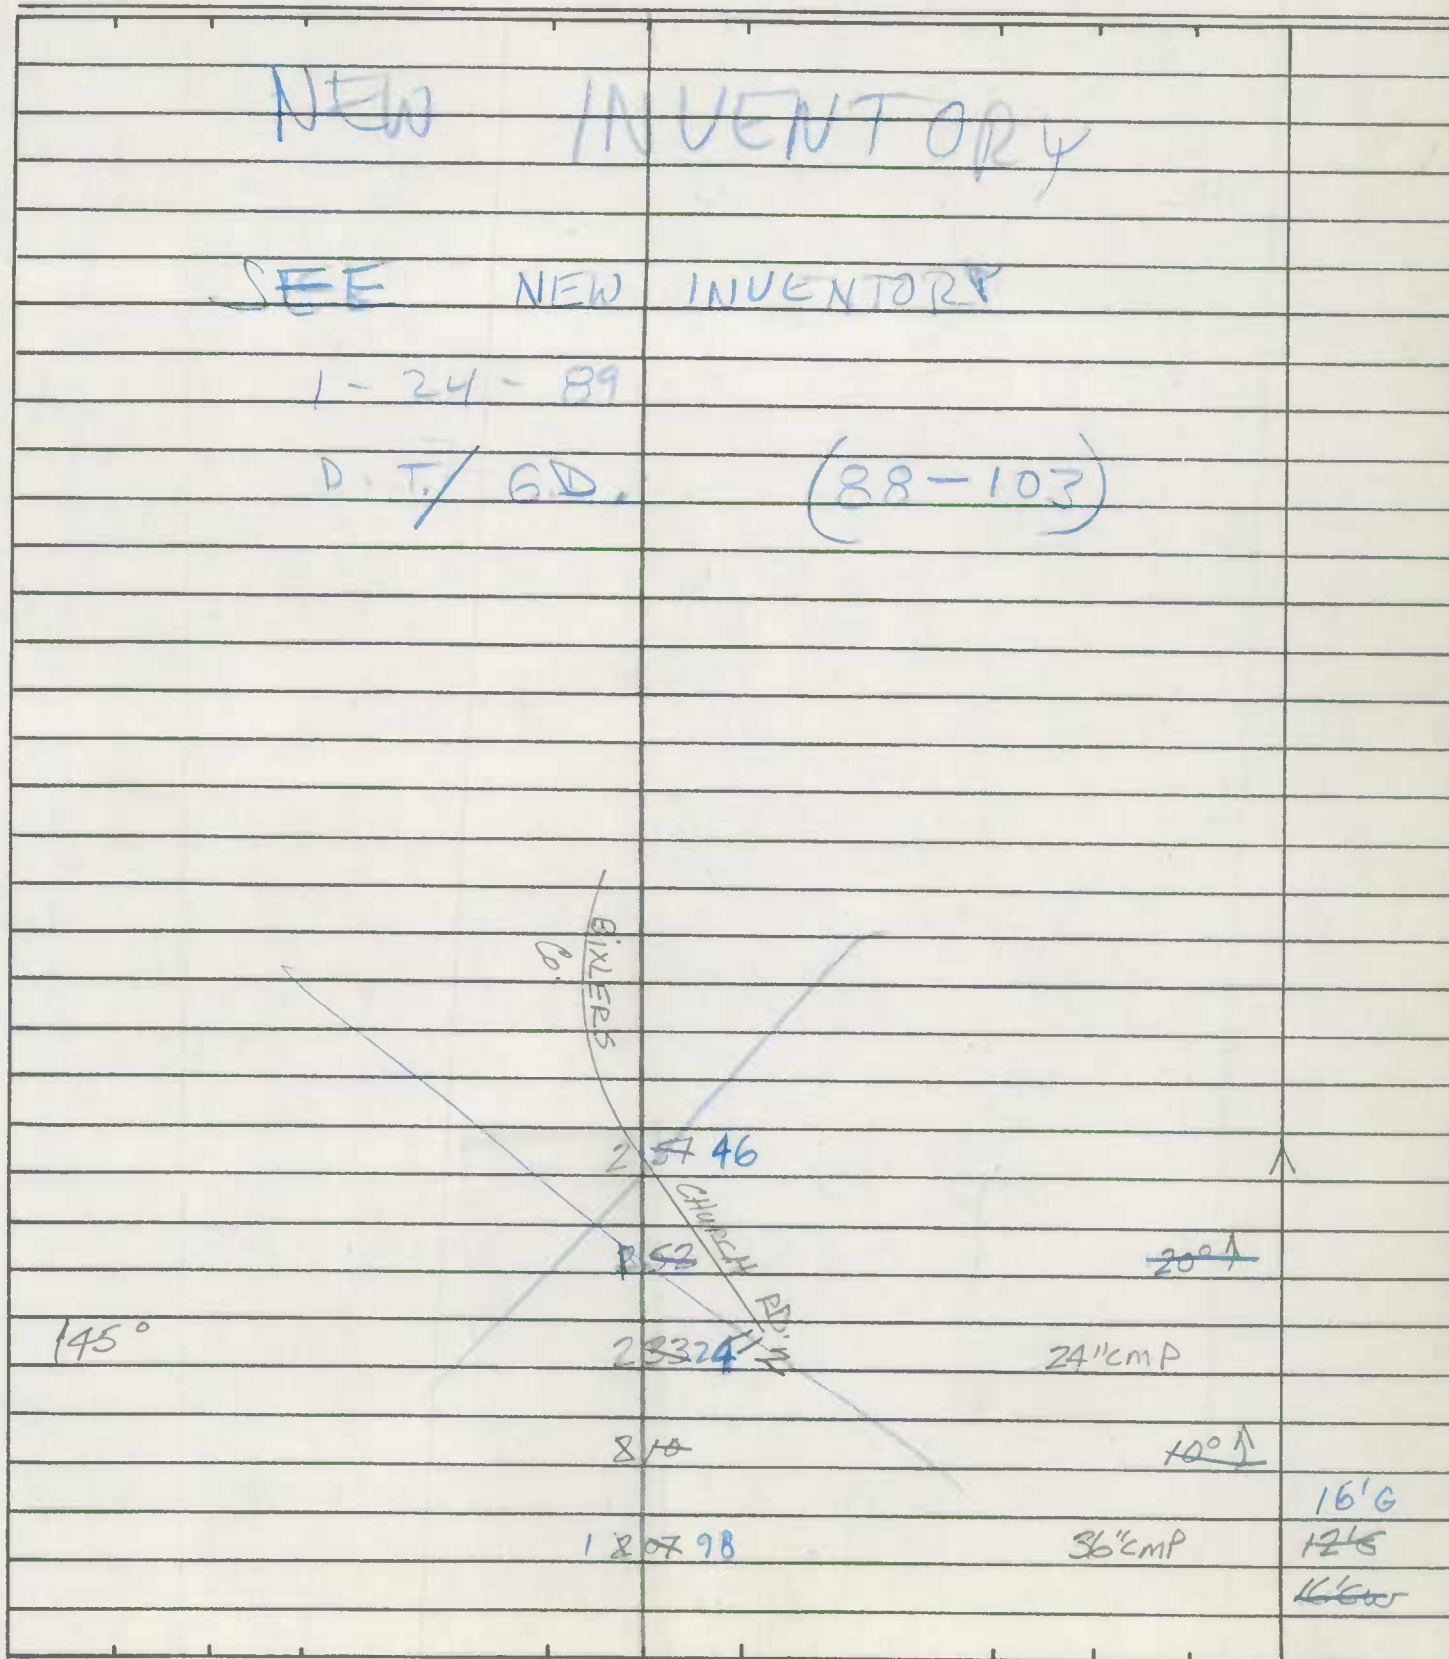 NEW INVENTORY
SEE NEW INVENTORY
1 - 24 - 89
D. T. / G.D. (88 - 103)
BIXLERS
Co.
2 57 46
CHURCH RD.
52 20° ↑
145° 23324 24"CMP
8 10 10° ↑
16'G
1 8 07 98 36"CMP 12'G